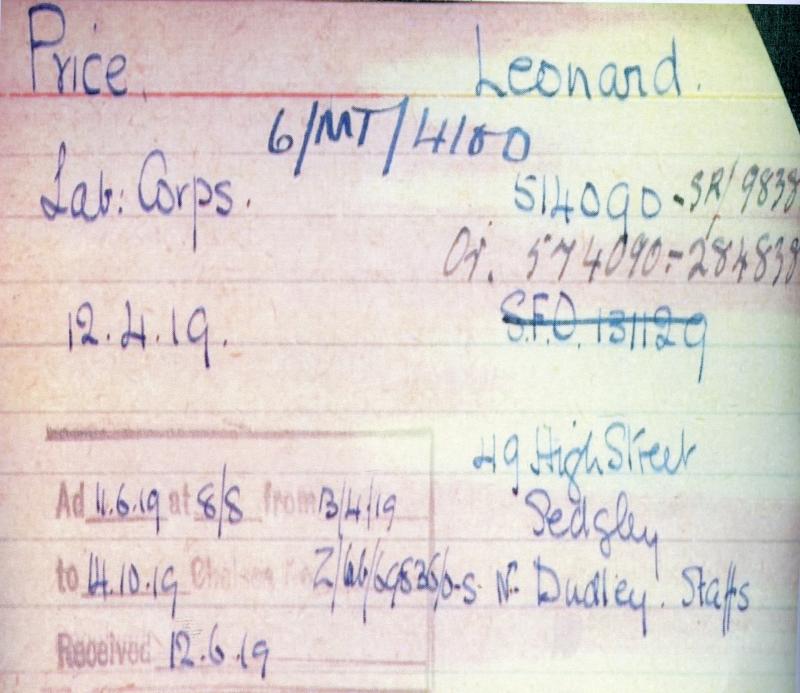 Price. Leonard.
6/MT/4100
Lab: Corps. 514090 - SR/9838
Or. 574090 = 284838
12.4.19. S.F.O. 131129
49 High Street
Ad 11.6.19 at 8/8 from 13/4/19 Sedgley
to 14.10.19 Chelsea Nr. Dudley. Staffs
Received 12.6.19